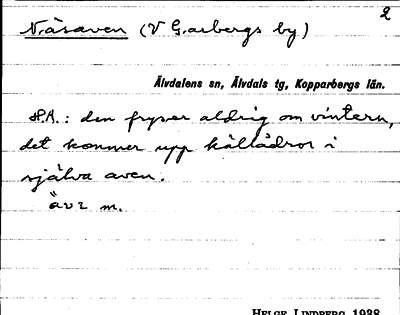 2
Näsaven (V Garbergs by)
Älvdalens sn, Älvdals tg, Kopparbergs län.
SA.: den fryser aldrig om vintern,
det kommer upp källådror i
själva aven.
äv2 m.
HELGE LINDBERG 1938